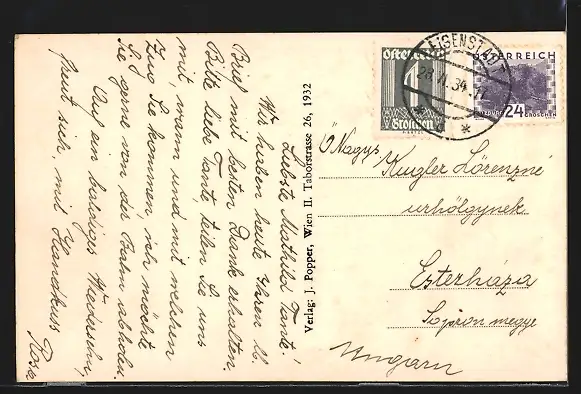 Liebste Mathild Tante!
Wir haben heute Ihren lb.
Brief mit besten Danke erhalten.
Bitte liebe Tante, teilen Sie uns
mit, wann und mit welchen
Zug Sie kommen, ich möchte
Sie gerne von der Bahn abholen.
Auf ein baldiges Wiedersehn,
freut sich, mit Handkuss
Rosa
Verlag: J. Popper, Wien II. Taborstrasse 26, 1932
Österreich
1
Groschen
EISENSTADT
ÖSTERREICH
24
GROSCHEN
Ő Nagys.
Kugler Lőrenzné
urhölgynek
Esterháza
Sopron megye
Ungarn